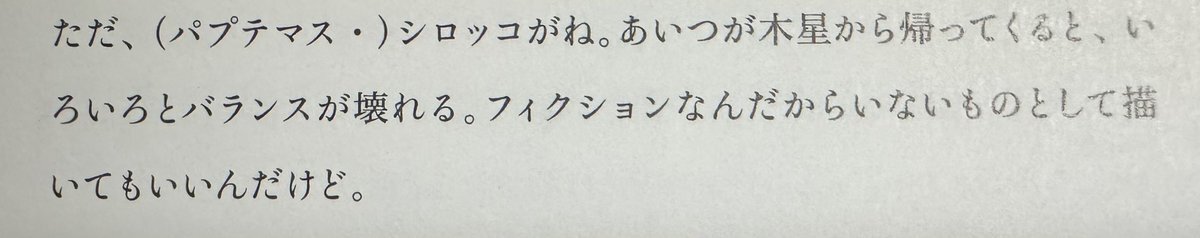 ただ、（パプテマス・）シロッコがね。あいつが木星から帰ってくると、い
ろいろとバランスが壊れる。フィクションなんだからいないものとして描
いてもいいんだけど。